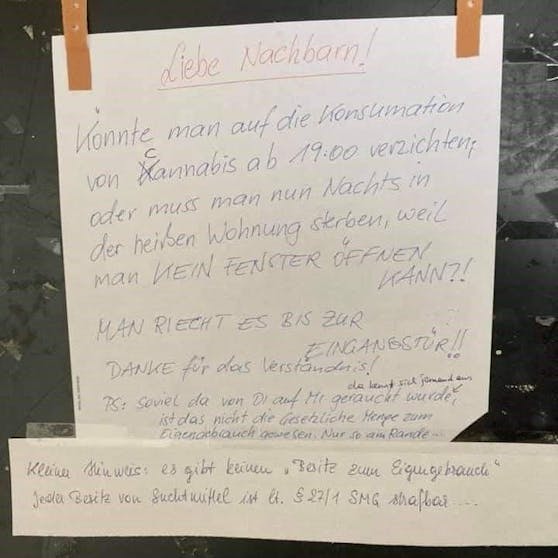 Liebe Nachbarn!
Könnte man auf die Konsumation
von Cannabis ab 19:00 verzichten,
oder muss man nun Nachts in
der heißen Wohnung sterben, weil
man KEIN FENSTER ÖFFNEN
KANN?!
MAN RIECHT ES BIS ZUR
EINGANGSTÜR!!
DANKE für das Verständnis!
da kennt sich jemand aus
PS: soviel da von DI auf MI geraucht wurde,
ist das nicht die Gesetzliche Menge zum
Eigengebrauch gewesen. Nur so am Rande...
Kleiner Hinweis: es gibt keinen „Besitz zum Eigengebrauch"
Jeder Besitz von Suchtmittel ist lt. § 27/1 SMG strafbar....